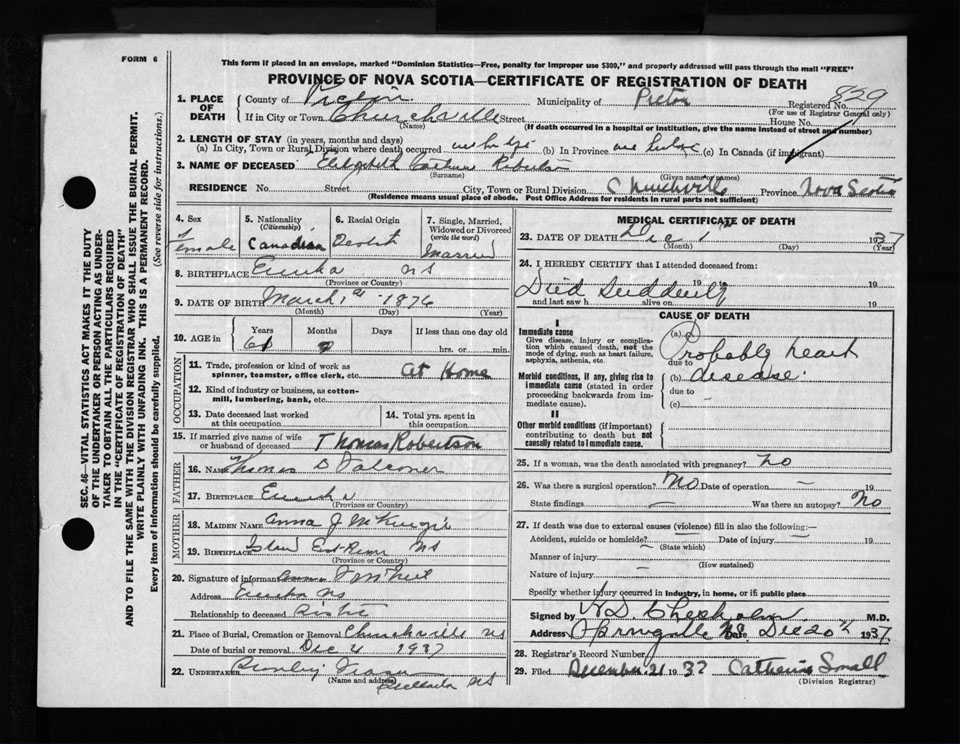 FORM 6
This form if placed in an envelope, marked "Dominion Statistics—Free, penalty for improper use $300," and properly addressed will pass through the mail "FREE"
PROVINCE OF NOVA SCOTIA—CERTIFICATE OF REGISTRATION OF DEATH
1. PLACE OF DEATH
County of Pictou Municipality of Pictou Registered No. 829
(For use of Registrar General only)
If in City or Town Churchville Street House No.
(Name) (If death occurred in a hospital or institution, give the name instead of street and number)
2. LENGTH OF STAY (in years, months and days)
(a) In City, Town or Rural Division where death occurred (b) In Province (c) In Canada (if immigrant)
3. NAME OF DECEASED Elizabeth Robertson
(Surname) (Given name or names)
RESIDENCE No. Street City, Town or Rural Division Churchville Province Nova Scotia
(Residence means usual place of abode. Post Office Address for residents in rural parts not sufficient)
4. Sex Female
5. Nationality (Citizenship) Canadian
6. Racial Origin Scotch
7. Single, Married, Widowed or Divorced (write the word) Married
8. BIRTHPLACE Eureka NS
(Province or Country)
9. DATE OF BIRTH March 1st 1876
(Month) (Day) (Year)
10. AGE in Years Months Days If less than one day old
61 9 hrs. or min.
OCCUPATION
11. Trade, profession or kind of work as spinner, teamster, office clerk, etc. At Home
12. Kind of industry or business, as cotton-mill, lumbering, bank, etc.
13. Date deceased last worked at this occupation
14. Total yrs. spent in this occupation
15. If married give name of wife or husband of deceased Thomas Robertson
FATHER
16. Name Thomas D Falconer
17. Birthplace Eureka
(Province or Country)
MOTHER
18. Maiden Name Anna J McKenzie
19. Birthplace Island East River NS
(Province or Country)
20. Signature of informant
Address Eureka NS
Relationship to deceased Sister
21. Place of Burial, Cremation or Removal Churchville NS
Date of burial or removal Dec 4 1937
22. UNDERTAKER
(Name and address) NS
MEDICAL CERTIFICATE OF DEATH
23. DATE OF DEATH Dec 1st 1937
(Month) (Day) (Year)
24. I HEREBY CERTIFY that I attended deceased from:
Died Suddenly 19 19
and last saw h alive on 19
CAUSE OF DEATH
I
Immediate cause
Give disease, injury or complication which caused death, not the mode of dying, such as heart failure, asphyxia, asthenia, etc.
(a) Probably heart
due to
Morbid conditions, if any, giving rise to immediate cause (stated in order proceeding backwards from immediate cause).
(b) disease.
due to
(c) –
II
Other morbid conditions (if important) contributing to death but not causally related to immediate cause.
25. If a woman, was the death associated with pregnancy? no
26. Was there a surgical operation? No Date of operation — 19
State findings — Was there an autopsy? No
27. If death was due to external causes (violence) fill in also the following:—
Accident, suicide or homicide? — Date of injury — 19
(State which)
Manner of injury
(How sustained)
Nature of injury —
Specify whether injury occurred in industry, in home, or in public place
Signed by M.D.
Address Springville NS Date Dec 20th 1937.
28. Registrar's Record Number
29. Filed December 21 1937 Catherine Small
(Division Registrar)
SEC. 46—VITAL STATISTICS ACT MAKES IT THE DUTY
OF THE UNDERTAKER OR PERSON ACTING AS UNDER-
TAKER TO OBTAIN ALL THE PARTICULARS REQUIRED
IN THE "CERTIFICATE OF REGISTRATION OF DEATH"
AND TO FILE THE SAME WITH THE DIVISION REGISTRAR WHO SHALL ISSUE THE BURIAL PERMIT.
WRITE PLAINLY WITH UNFADING INK. THIS IS A PERMANENT RECORD.
Every item of information should be carefully supplied. (See reverse side for instructions.)